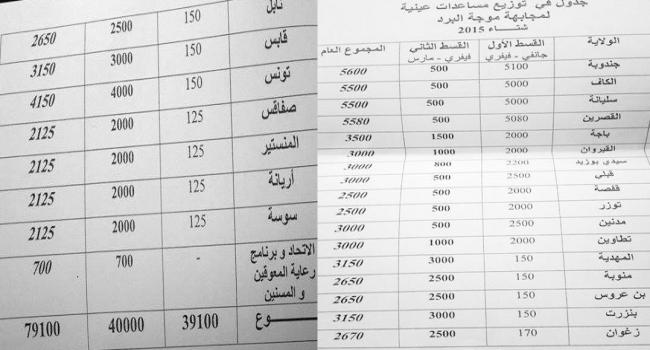 جدول في توزيع مساعدات عينية
لمجابهة موجة البرد
شتاء 2015
الولاية القسط الأول جانفي - فيفري القسط الثاني فيفري - مارس المجموع العام
جندوبة 5100 500 5600
الكاف 5000 500 5500
سليانة 5000 500 5500
القصرين 5080 500 5580
باجة 2000 1500 3500
القيروان 2000 1000 3000
سيدي بوزيد 2200 800 3000
قبلي 2500 500 3000
قفصة 2000 500 2500
توزر 2000 500 2500
مدنين 2500 500 3000
تطاوين 2000 1000 3000
المهدية 150 3000 3150
منوبة 150 2500 2650
بن عروس 150 2500 2650
بنزرت 150 3000 3150
زغوان 170 2500 2670
نابل 150 2500 2650
قابس 150 3000 3150
تونس 150 4000 4150
صفاقس 125 2000 2125
المنستير 125 2000 2125
أريانة 125 2000 2125
سوسة 125 2000 2125
الاتحاد و برنامج رعاية المعوقين و المسنين - 700 700
وع 39100 40000 79100